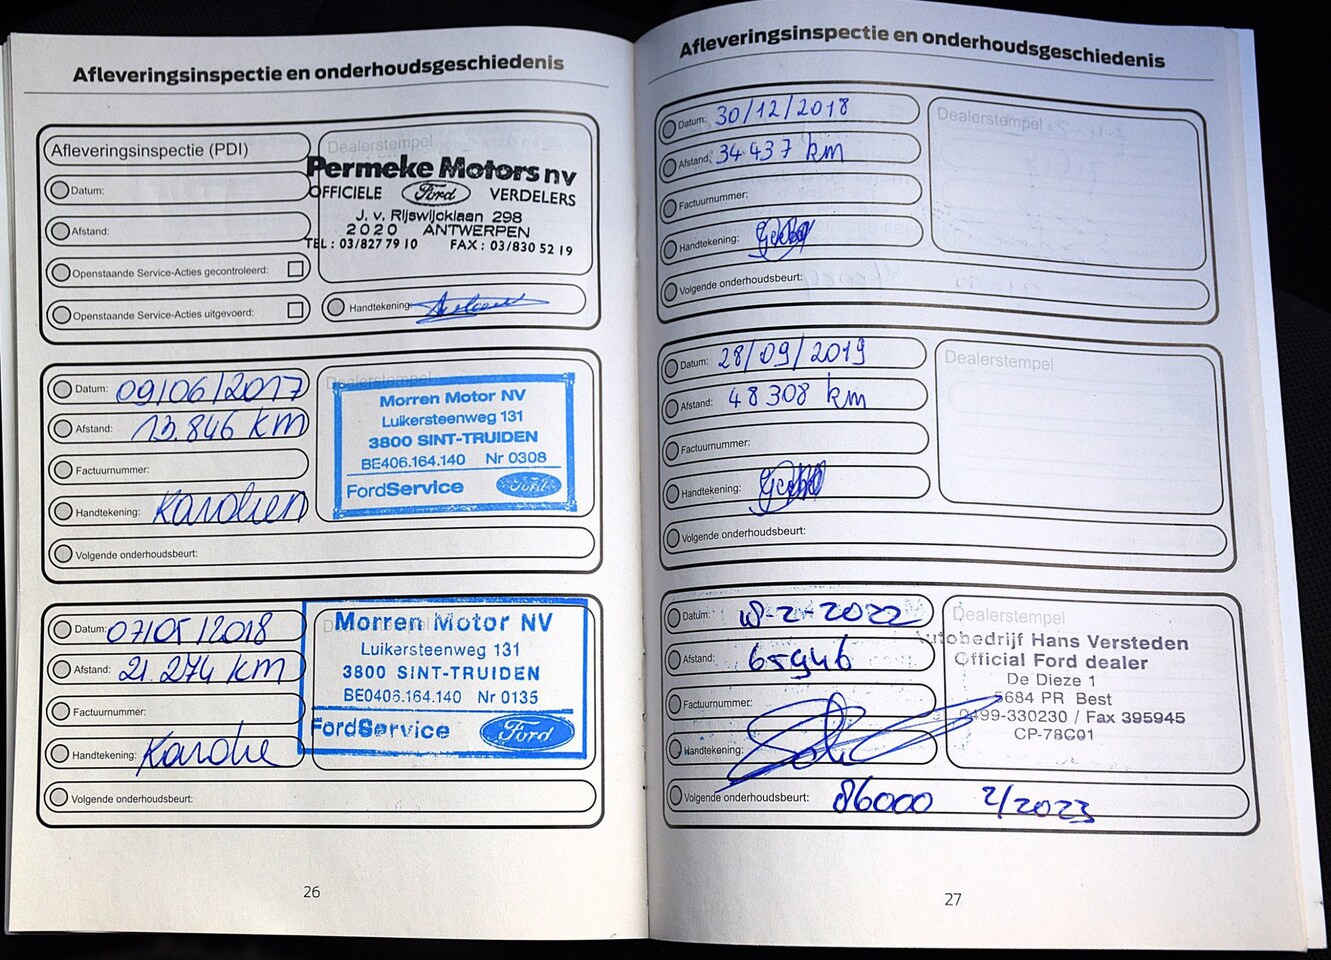 Afleveringsinspectie en onderhoudsgeschiedenis
Afleveringsinspectie (PDI)
Datum:
Afstand:
Openstaande Service-Acties gecontroleerd:
Openstaande Service-Acties uitgevoerd:
Dealerstempel
Permeke Motors nv
OFFICIELE Ford VERDELERS
J. v. Rijswijcklaan 298
2020 ANTWERPEN
TEL : 03/827 79 10 FAX : 03/830 52 19
Handtekening:
Datum: 09/06/2017
Afstand: 13.846 KM
Factuurnummer:
Handtekening: Karolien
Volgende onderhoudsbeurt:
Dealerstempel
Morren Motor NV
Luikersteenweg 131
3800 SINT-TRUIDEN
BE406.164.140 Nr 0308
FordService Ford
Datum: 07/05/2018
Afstand: 21.274 KM
Factuurnummer:
Handtekening:
Volgende onderhoudsbeurt:
Morren Motor NV
Luikersteenweg 131
3800 SINT-TRUIDEN
BE0406.164.140 Nr 0135
FordService Ford
26
Afleveringsinspectie en onderhoudsgeschiedenis
Datum: 30/12/2018
Afstand: 34 437 km
Factuurnummer:
Handtekening:
Volgende onderhoudsbeurt:
Dealerstempel
Datum: 28/09/2019
Afstand: 48 308 km
Factuurnummer:
Handtekening:
Volgende onderhoudsbeurt:
Dealerstempel
Datum: 18-2-2022
Afstand: 65946
Factuurnummer:
Handtekening:
Volgende onderhoudsbeurt: 86000 2/2023
Dealerstempel
Autobedrijf Hans Versteden
Official Ford dealer
De Dieze 1
5684 PR Best
0499-330230 / Fax 395945
CP-78C01
27